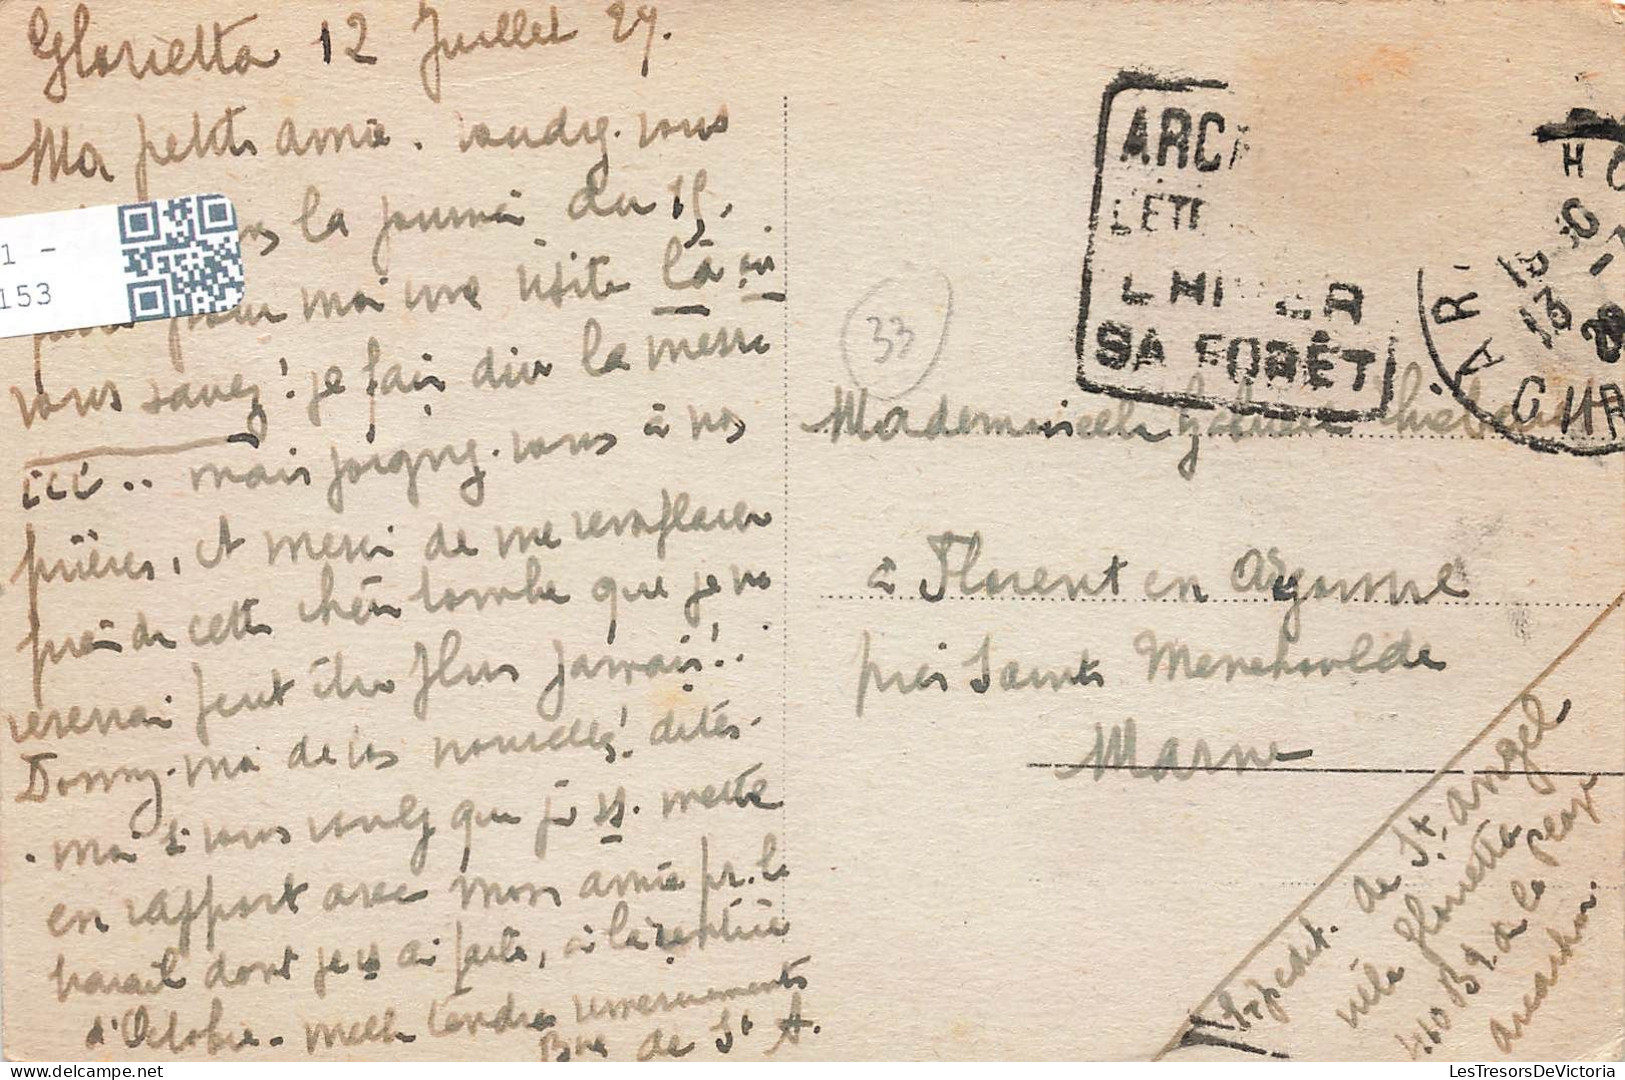 Glorietta 12 Juillet 29.
Ma petite amie. voudrez-vous
la journée du 15,
pour moi une visite là où
vous savez! je fais dire la messe
ici.. mais joignez-vous à nos
prières, et merci de me remplacer
près de cette chère tombe que je ne
reverrai peut être plus jamais!.
Donnez-moi de vos nouvelles! dites-
moi si vous voulez que je vs. mette
en rapport avec mon amie pr. le
travail dont je vs ai parlé, à la rentrée
d'Octobre. mille tendres remerciements
Bnne de St A.
1 -
153
33
ARCA
L'ÉTÉ
L'HIVER
SA FORÊT
Mademoiselle Thiébault
à Florent en Argonne
près Sainte Menehould
Marne
Expedit. de St. Angel
villa Glorietta
410 Bd de la Plage
Arcachon.
LesTresorsDeVictoria.com